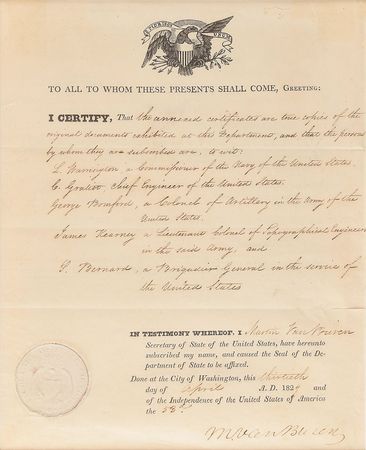 E PLURIBUS UNUM
TO ALL TO WHOM THESE PRESENTS SHALL COME, GREETING:
I CERTIFY, That the annexed certificates are true copies of the
original documents exhibited at this Department, and that the persons
by whom they are subscribed are, to wit:
L. Warrington, a Commissioner of the Navy of the United States.
C. Gratiot Chief Engineer of the United States.
George Bomford, a Colonel of Artillery in the Army of the
United States.
James Kearney a Lieutenant Colonel of Topographical Engineers
in the said Army, and
S. Bernard, a Brigadier General in the service of
the United States
IN TESTIMONY WHEREOF, I Martin Van Buren
Secretary of State of the United States, have hereunto
subscribed my name, and caused the Seal of the De-
partment of State to be affixed.
Done at the City of Washington, this thirtieth
day of April A. D. 1829 and
of the Independence of the United States of America
the 53d.
M Van Buren